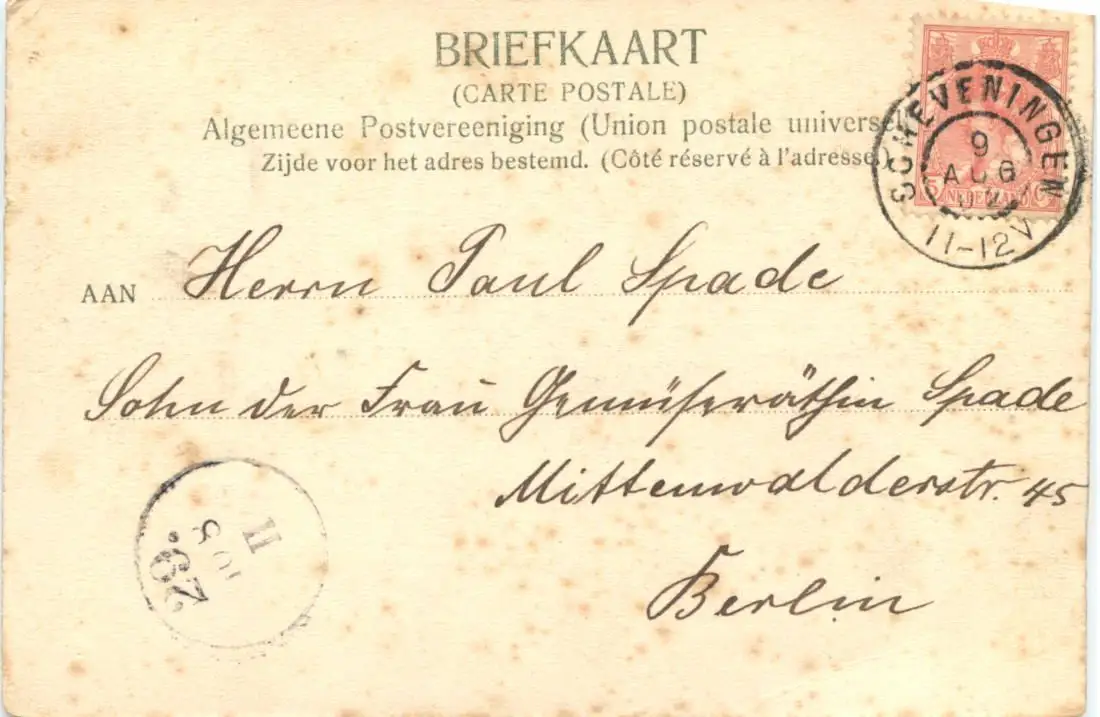 BRIEFKAART
(CARTE POSTALE)
Algemeene Postvereeniging (Union postale universel
Zijde voor het adres bestemd. (Côté réservé à l'adresse)
SCHEVENINGEN
9
AUG
11-12V
5 NEDERLAND C
AAN Herrn Paul Spade
Sohn der Frau Gemüseräthin Spade
Mittenwalderstr. 45
Berlin
11
8
29.